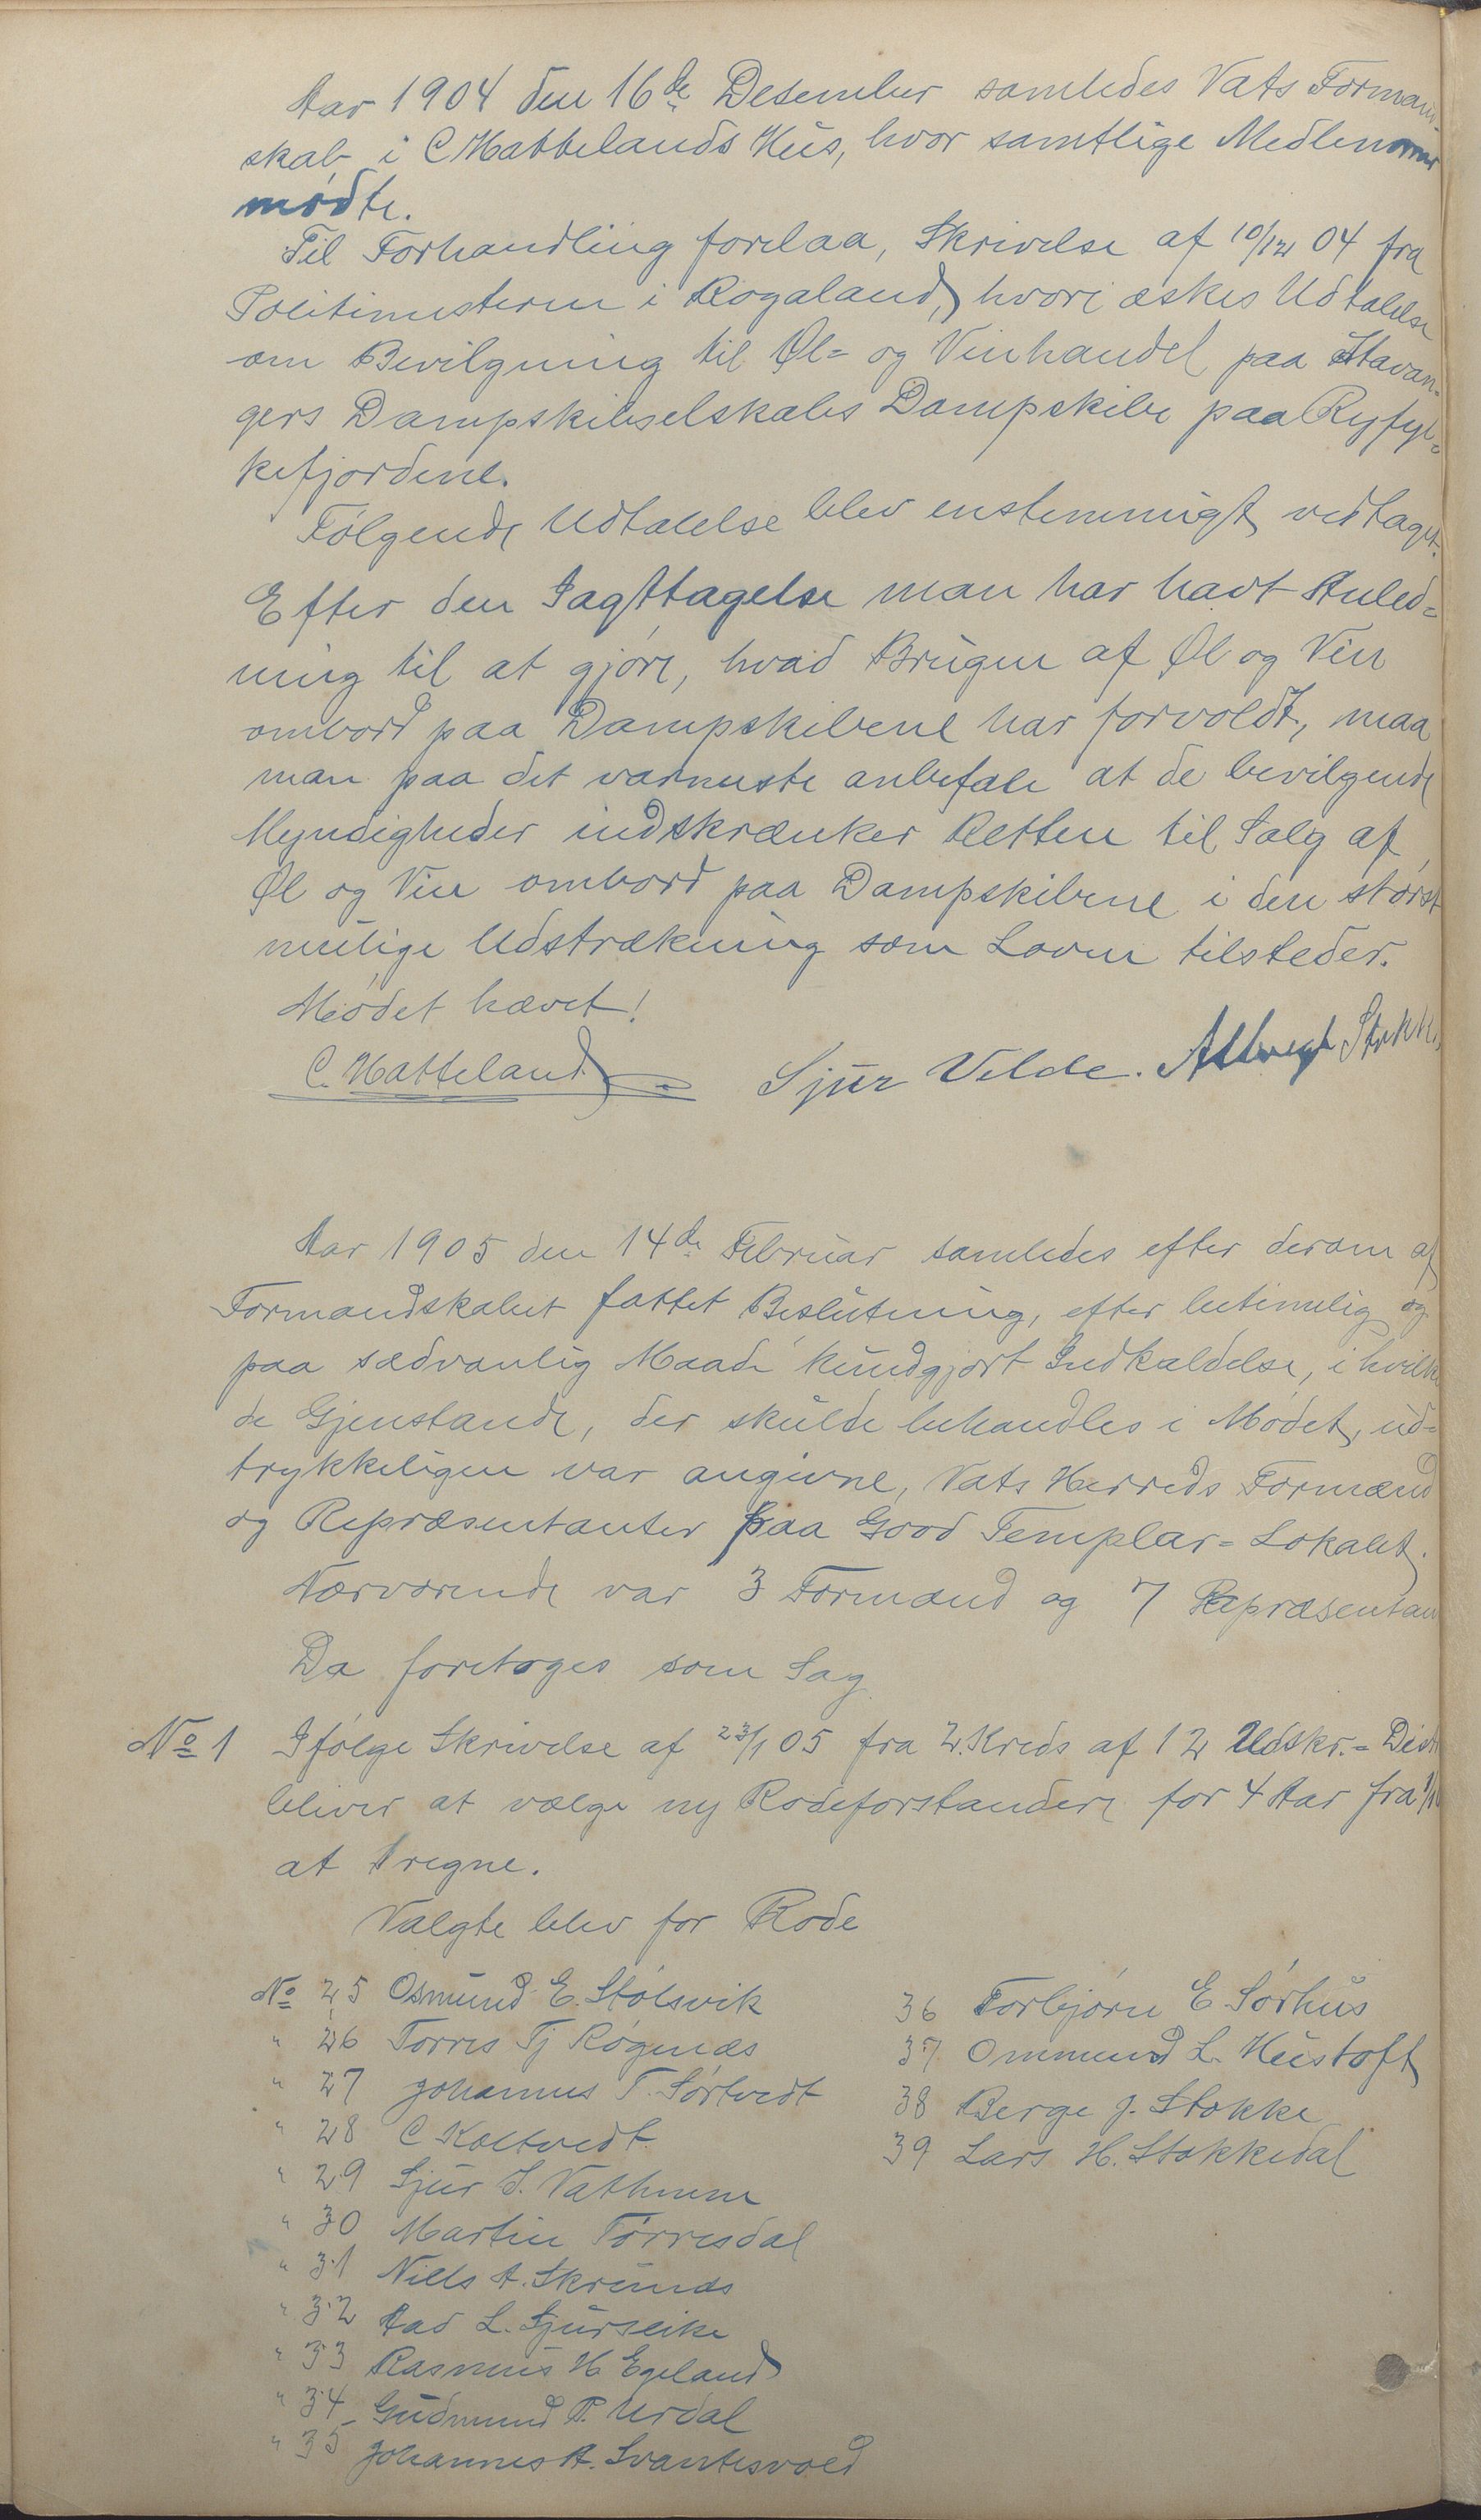 Aar 1904 den 16de Desember samledes Vats Forman-
skab i C Hattelands Hus, hvor samtlige Medlemmer
mødte.
Til Forhandling forelaa, Skrivelse af 10/12 04 fra
Politimesteren i Rogaland, hvori æskes Udtalelse
om Bevilgning til Øl= og Vinhandel paa Stavan-
gers Dampskibsselskabs Dampskibe paa Ryfyl=
kefjordene.
Følgende Udtalelse blev enstemmigt vedtaget.
Efter den Iagttagelse man har havt Anled=
ning til at gjøre, hvad Brugen af Øl og Vin
ombord paa Dampskibene har forvoldt, maa
man paa det varmeste anbefale at de bevilgende
Myndigheder indskrænker Retten til Salg af
Øl og Vin ombord paa Dampskibene i den størst
mulige Udstrækning som Loven tilsteder.
Mødet hævet!
C. Hatteland Sjur Velde. Stokke
Aar 1905 den 14de Februar samledes efter derom af
Formandskabet fattet Beslutning, efter betimelig og
paa sædvanlig Maade kundgjort Indkaldelse, i hvilke
de Gjenstande, der skulde behandles i Mødet, ud-
trykkeligen var angivne, Vats Herreds Formænd
og Repræsentanter paa Good Templar= Lokalet.
Nærværende var 3 Formænd og 7 Repræsentan
Da foretoges som Sag
No 1 Ifølge Skrivelse af 23/1 05 fra 2. Kreds af 12 Udskr.= Distr
bliver at vælge ny Rodeforstandere for 4 Aar fra 1/1
at regne.
Valgte blev for Rode
No 25 Osmund E. Stølsvik
" 26 Torres Tj Røgenæs
" 27 Johannes T. Sørtvedt
" 28 C Koltvedt.
" 29 Sjur S. Vathnem
" 30 Martin Tørresdal
" 31 Niels A. Skrunæs
" 32 Aad L. Gjurseike
" 33 Rasmus H Egeland
" 34 Gudmund T. Urdal
" 35 Johannes A. Svantesvold
36 Torbjørn E. Sørhus
37 Ommund L. Hustoft
38 Berge J. Stokke
39 Lars H. Stokkedal